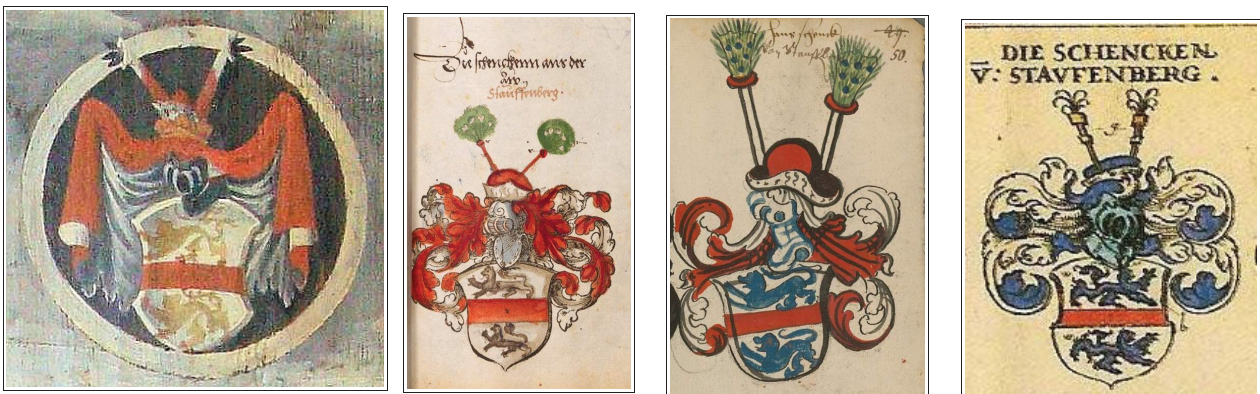 Die schenckenn aus der
aw,
Stauffenberg.
Hans schenck
von Stauff
49.
50.
DIE SCHENCKEN.
V: STAVFENBERG.